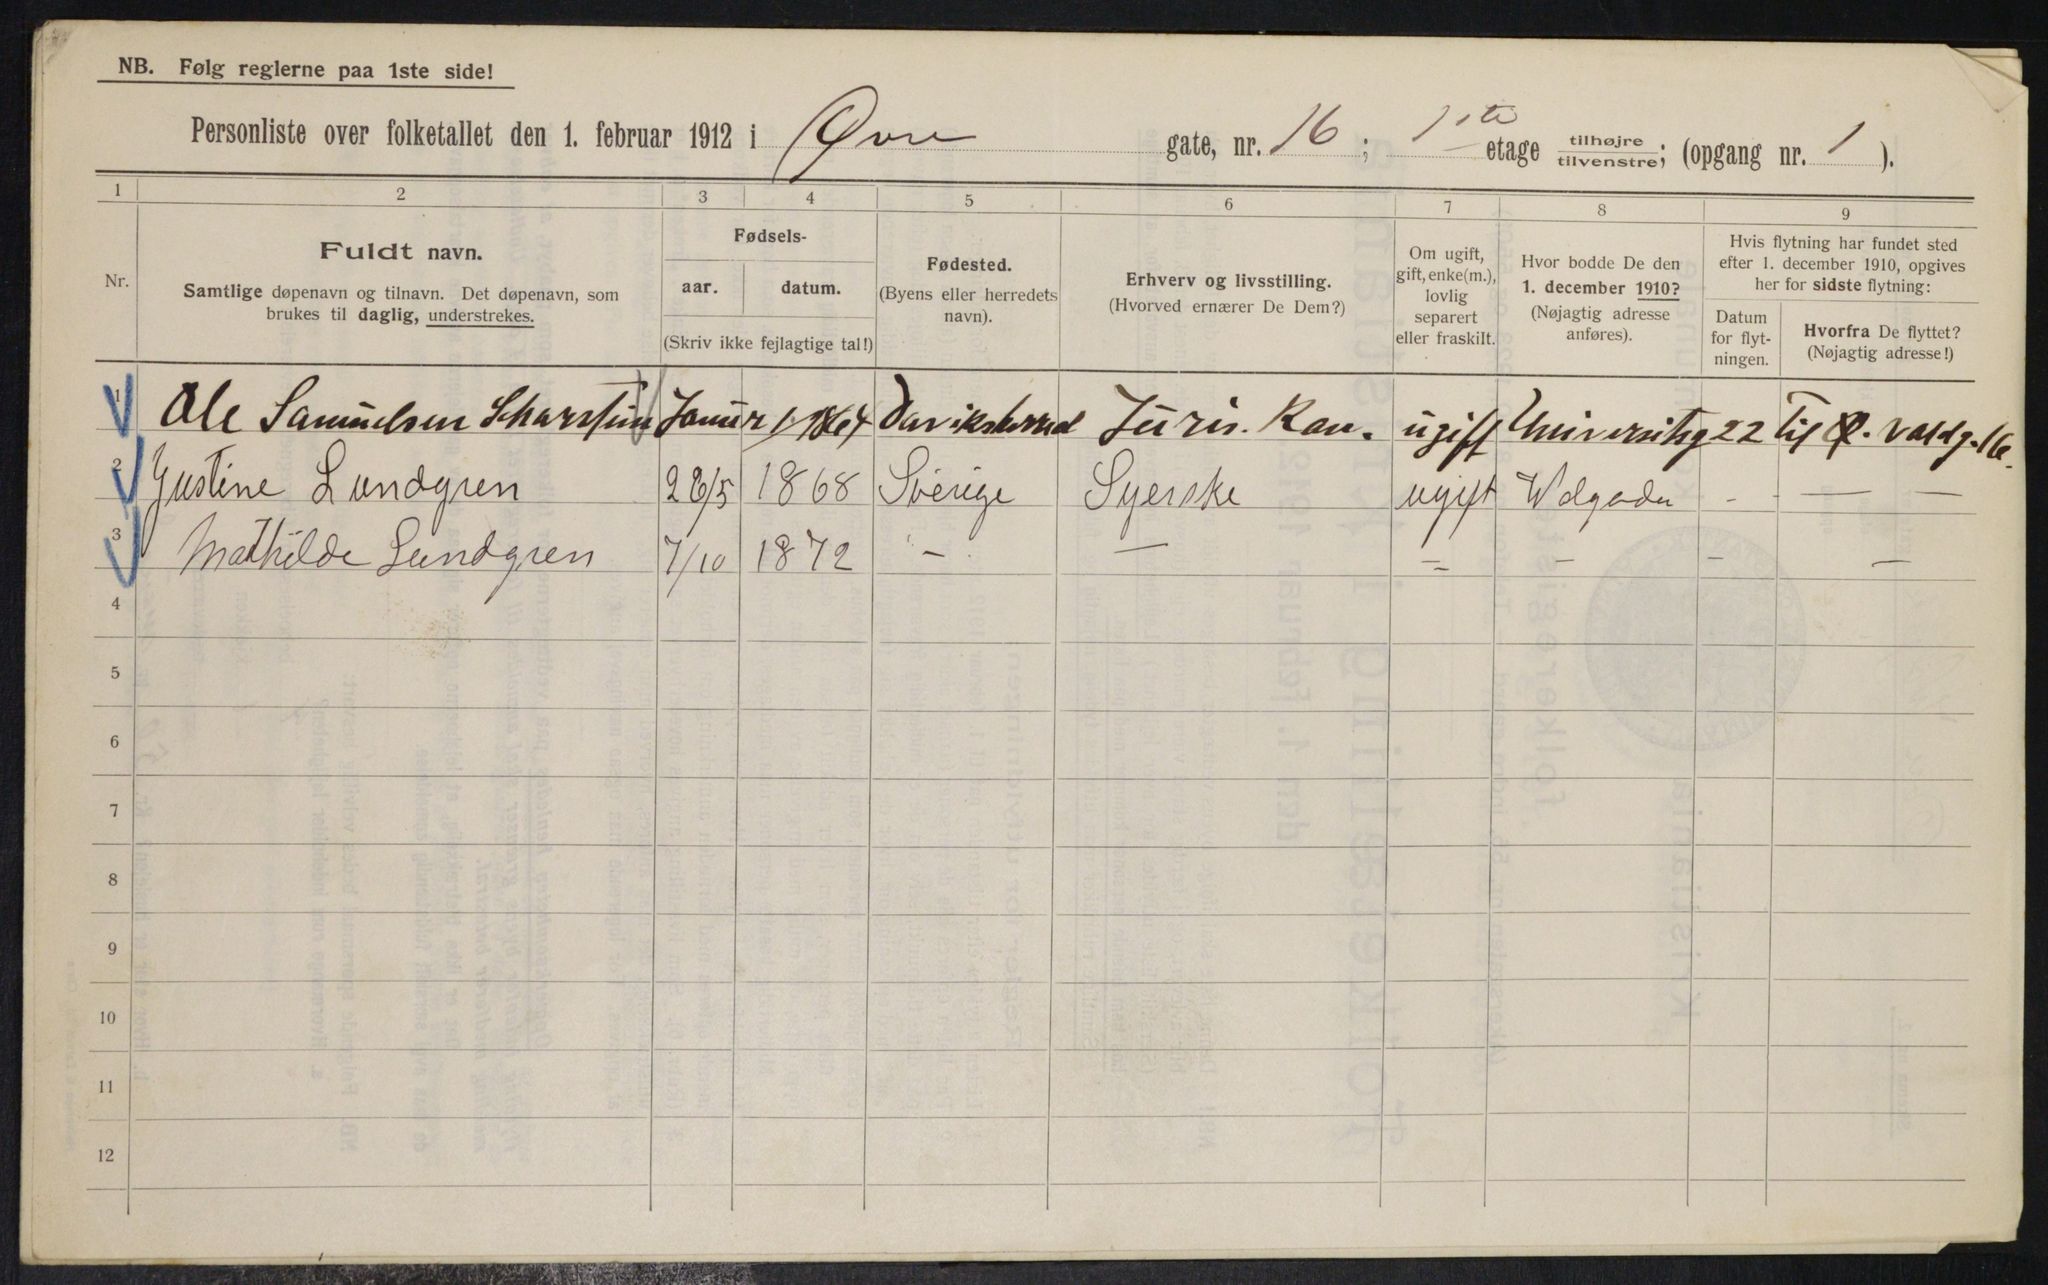 NB. Følg reglerne paa 1ste side!
Personliste over folketallet den 1. februar 1912 i Øvre gate, nr. 16 ; 1ste etage tilhøjre/tilvenstre; (opgang nr. 1 ).
1 2 3 4 5 6 7 8 9
Nr.
Fuldt navn.
Samtlige døpenavn og tilnavn. Det døpenavn, som
brukes til daglig, understrekes.
Fødsels-
aar. datum.
(Skriv ikke fejlagtige tal!)
Fødested.
(Byens eller herredets
navn).
Erhverv og livsstilling.
(Hvorved ernærer De Dem?)
Om ugift,
gift, enke(m.),
lovlig
separert
eller fraskilt.
Hvor bodde De den
1. december 1910?
(Nøjagtig adresse
anføres).
Hvis flytning har fundet sted
efter 1. december 1910, opgives
her for sidste flytning:
Datum
for flyt-
ningen.
Hvorfra De flyttet?
(Nøjagtig adresse!)
1 Ole Samuelsen Januar 1 1864 Daviksherred Juris. Kan. ugift Universitsg 22 Til Ø. Voldg. 16.
2 Gustine Lundgren 28/5 1868 Sverige Syerske ugift Wolgada - — —
3 Mathilde Lundgren 7/10 1872 – — = – – —
4
5
6
7
8
9
10
11
12